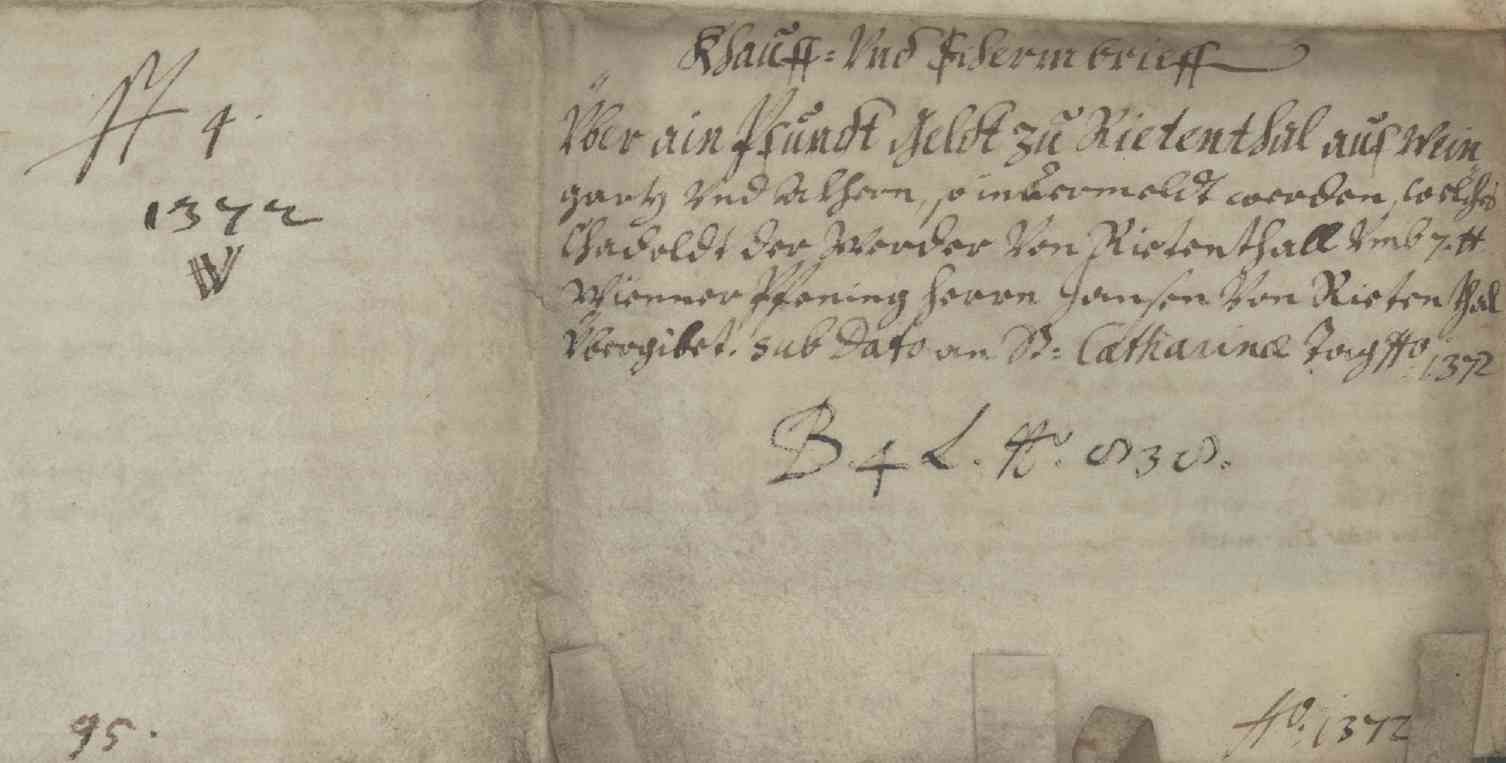 N 4.
1372
W
95.
Khauff= Vnd Schermbrieff
Vber ain Pfundt Geldt zu Rietenthal auf Wein
gartt vnd Akhern, so inuermeldt werden, welches
Chadoldt der Werder Von Rietenthall vmb 7 ℔
Wienner Pfening herrn Hansen Von Rietenthal
Vbergibet. sub Dato an St: Catharinæ Tag Aº 1372
B. 4 L. Nº. 838.
Aº. 1372